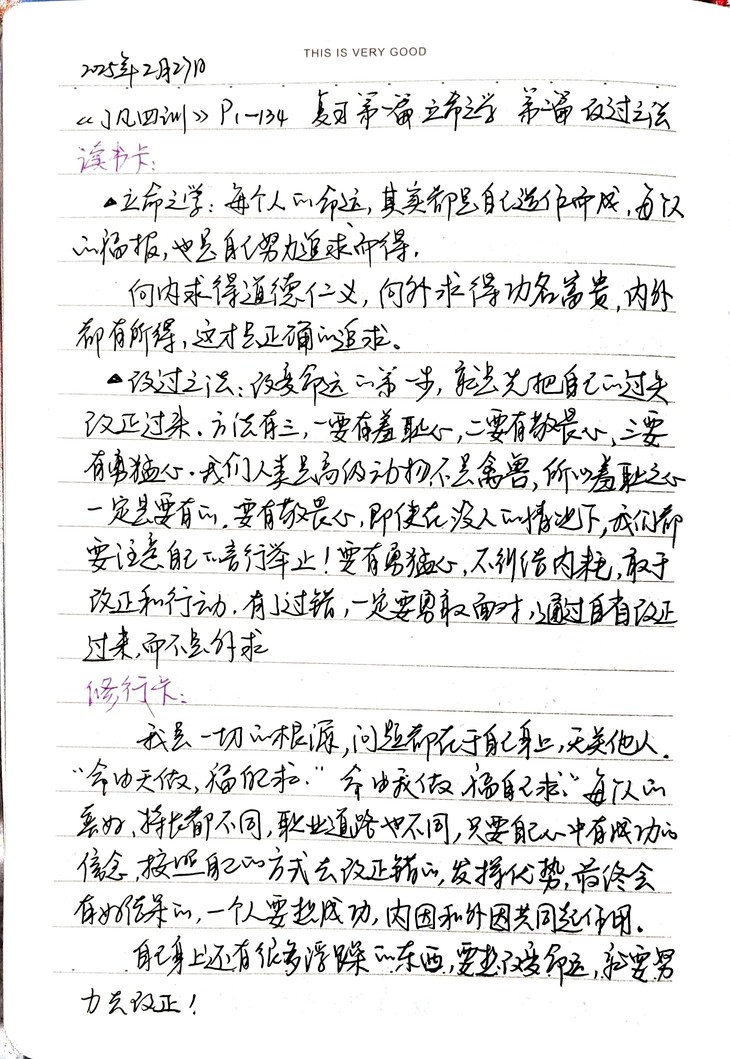 THIS IS VERY GOOD
2025年2月27日
《了凡四训》P1-134 复习第一篇 立命之学 第二篇 改过之法
读书卡:
▲立命之学:每个人的命运,其实都是自己造作而成,每个人
的福报,也是自己努力追求而得.
向内求得道德仁义,向外求得功名富贵,内外
都有所得,这才是正确的追求。
▲改过之法:改变命运的第一步,就是先把自己的过失
改正过来.方法有三,一要有羞耻心,二要有敬畏心,三要
有勇猛心.我们人类是高级动物不是禽兽,所以羞耻之心
一定是要有的.要有敬畏心,即使在没人的情况下,我们都
要注意自己的言行举止!要有勇猛心,不纠结内耗,敢于
改正和行动.有了过错,一定要勇敢面对,通过自省改正
过来,而不是外求
修行卡:
我是一切的根源,问题都在于自己身上,无关他人.
“命由天做,福自己求.”命由我做 福自己求.”每个人的
喜好,特长都不同,职业道路也不同,只要自己心中有成功的
信念,按照自己的方式去改正错的,发挥优势,最终会
有好结果的,一个人要想成功,内因和外因共同起作用.
自己身上还有很多浮躁的东西,要想改变命运,就要努
力去改正!